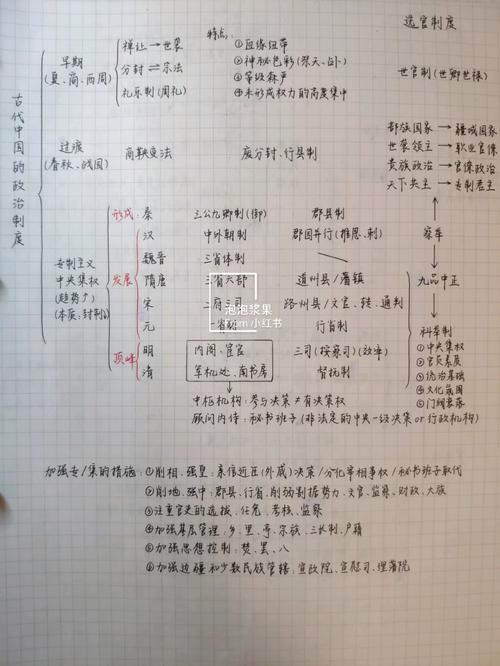 选官制度
古代中国的政治制度
早期
(夏、商、西周)
禅让→世袭
分封⇌宗法
礼乐制(周礼)
特点:
①血缘纽带
②神秘色彩(祭天、占卜)
③等级森严
④未形成权力的高度集中
世官制(世卿世禄)
过渡
(春秋、战国)
商鞅变法
废分封、行县制
部族国家→疆域国家
世袭领主→职业官僚
贵族政治→官僚政治
天下共主→专制君主
专制主义
中央集权
(趋势↑)
(本质:封制)
形成:秦 三公九卿制(御) 郡县制
汉 中外朝制 郡国并行(推恩、刺) 察举
发展
魏晋 三省体制
隋唐 三省六部 道州县/藩镇 九品中正
宋 二府三司 路州县/文官、转、通判
元 一省制 行省制
泡泡浆果
from 小红书
科举制
①中央集权
②官员素质
③统治基础
④文化氛围
⑤门阀衰落
顶峰
明 内阁、宦官 三司(按察司)(效率)
清 军机处、南书房 督抚制
中枢机构:参与决策≠有决策权
顾问内侍:秘书班子(非法定的中央一级决策or行政机构)
加强专/集的措施:①削相、强皇:亲信近臣(外戚)决策/分化宰相事权/秘书班子取代
②削地、强中:郡县、行省、削弱割据势力、文官、监察、财政、大族
③注重官吏的选拔、任免、考核、监察
④加强基层管理:乡、里、亭、宗族、三长制、户籍
⑤加强思想控制:焚、罢、八
⑥加强边疆和少数民族管辖:宣政院、宣慰司、理藩院